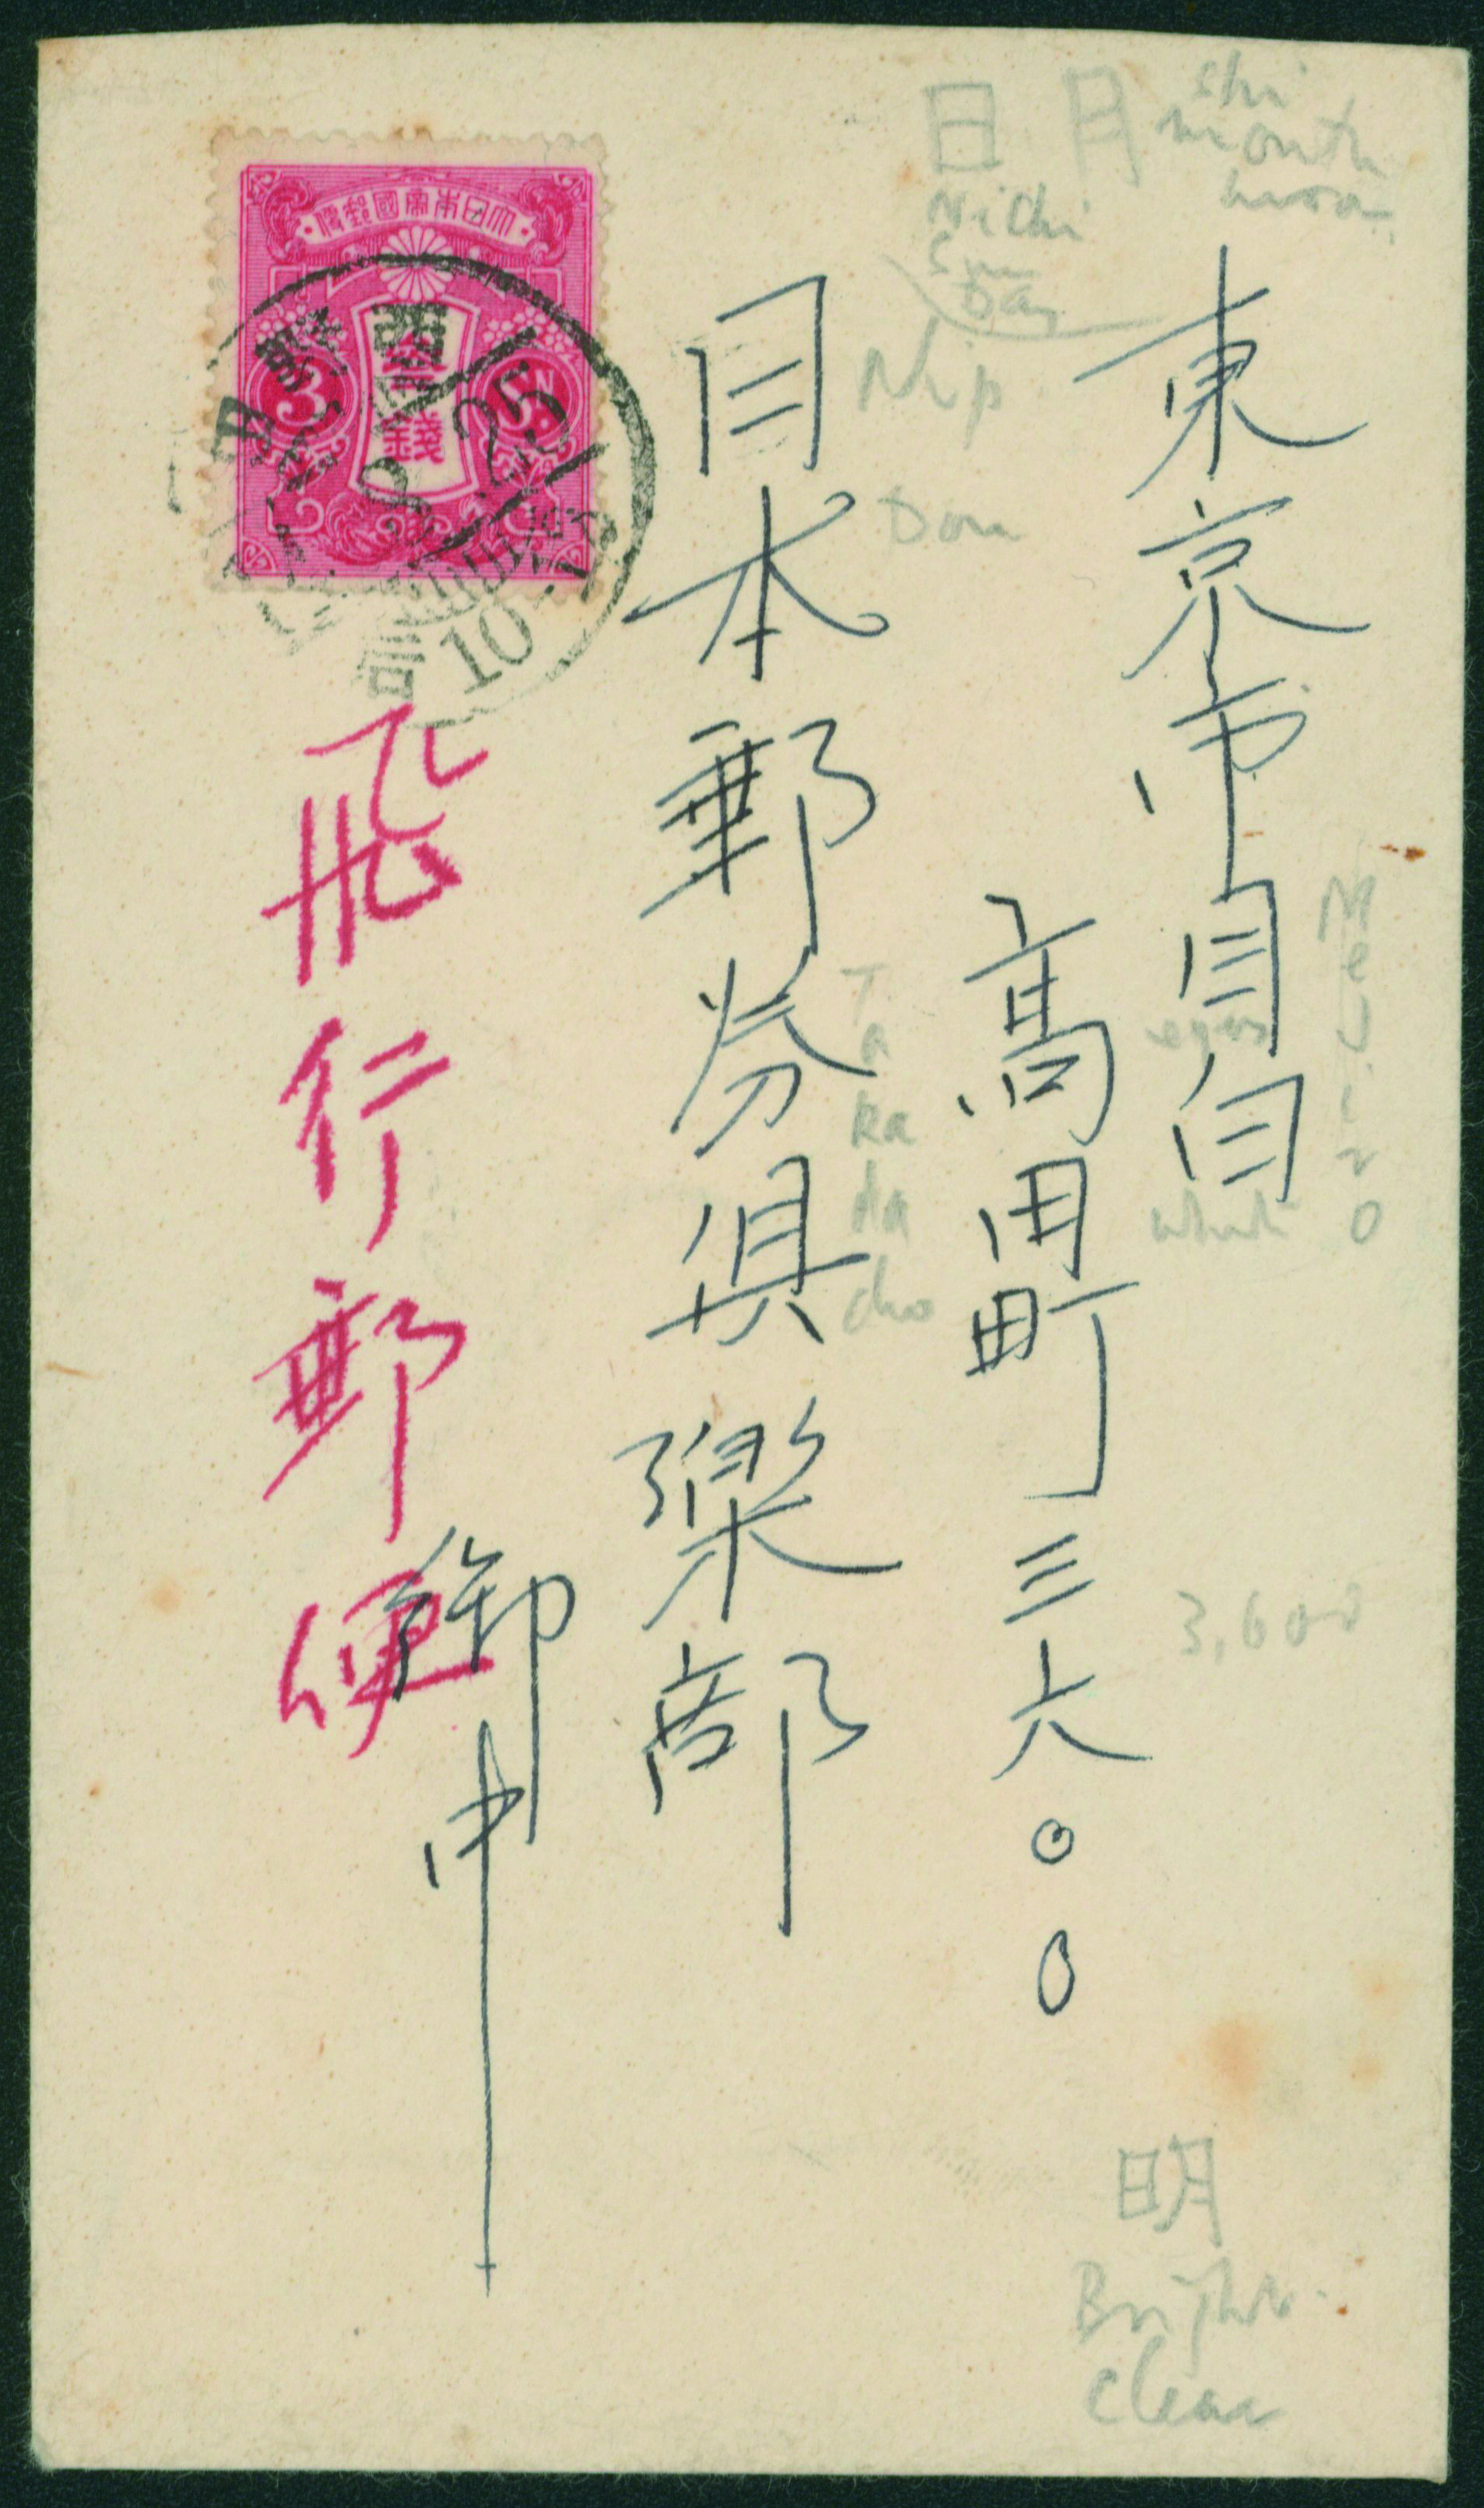 東京市目白
高田町三六〇〇
日本郵券倶樂部
御中
飛行郵便
大日本帝國郵便
參錢
3
Sn.
25
10
日 月
month
moon
Nichi
Sun
Day
Nip
Takadacho
eyes
3,600
明
Bright
clear